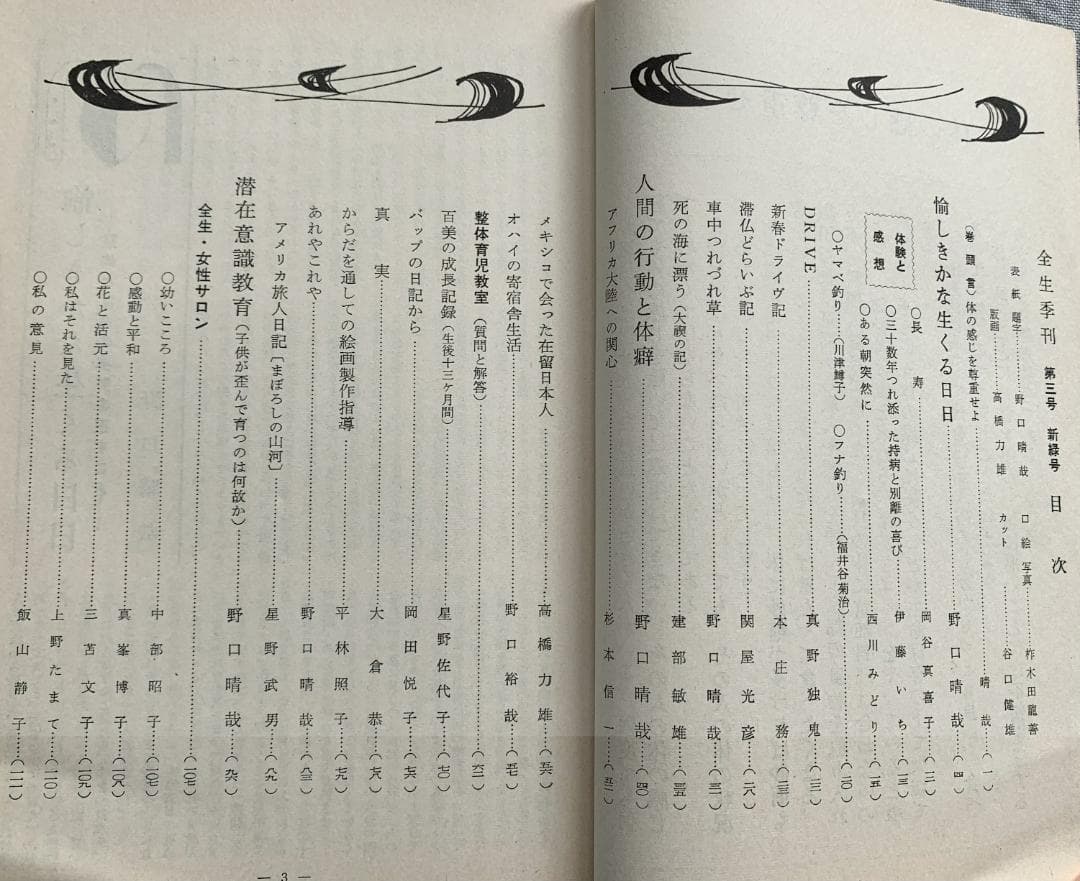 全生季刊 第三号 新緑号 目次
表紙 題字………野口晴哉 口絵写真………柞木田龍善
版画………高橋力雄 カット………谷口健雄
(巻頭言)体の感じを尊重せよ………晴哉…(一)
愉しきかな生くる日日………野口晴哉…(四)
体験と感想
○長寿………岡谷真喜子…(一一)
○三十数年つれ添った持病と別離の喜び………伊藤いち…(一三)
○ある朝突然に………西川みどり…(一五)
○ヤマベ釣り………(川津鱒子) ○フナ釣り………(福井谷菊治)………(二〇)
DRIVE………真野独鬼…(二三)
新春ドライヴ記………本庄務…(二三)
滞仏どらいぶ記………関屋光彦…(二八)
車中つれづれ草………野口晴哉…(三一)
死の海に漂う(大禊の記)………建部敏雄…(三五)
人間の行動と体癖………野口晴哉…(四〇)
アフリカ大陸への関心………杉本信一…(五一)
メキシコで会った在留日本人………高橋力雄…(五六)
オハイの寄宿舎生活………野口裕哉…(五七)
整体育児教室(質問と解答)………(六一)
百美の成長記録(生後十三ヶ月間)………星野佐代子…(七〇)
バップの日記から………岡田悦子…(七六)
真実………大倉恭…(七八)
からだを通しての絵画製作指導………平林照子…(七九)
あれやこれや………野口晴哉…(八三)
アメリカ旅人日記〔まぼろしの山河〕………星野武男…(八九)
潜在意識教育(子供が歪んで育つのは何故か)………野口晴哉…(九六)
全生・女性サロン………(一〇七)
○幼いこころ………中部昭子…(一〇七)
○感動と平和………真峯博子…(一〇八)
○花と活元………三苫文子…(一〇九)
○私はそれを見た………上野たまて…(一一〇)
○私の意見………飯山静子…(一一一)
— 3 —